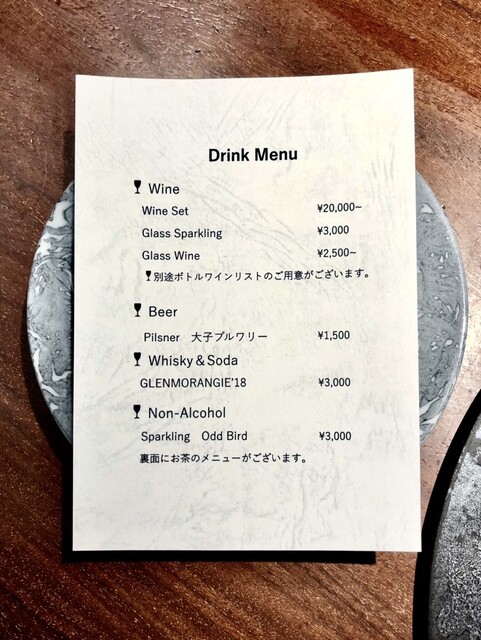 Drink Menu
Wine
Wine Set ¥20,000~
Glass Sparkling ¥3,000
Glass Wine ¥2,500~
別途ボトルワインリストのご用意がございます。
Beer
Pilsner 大子ブルワリー ¥1,500
Whisky＆Soda
GLENMORANGIE'18 ¥3,000
Non-Alcohol
Sparkling Odd Bird ¥3,000
裏面にお茶のメニューがございます。